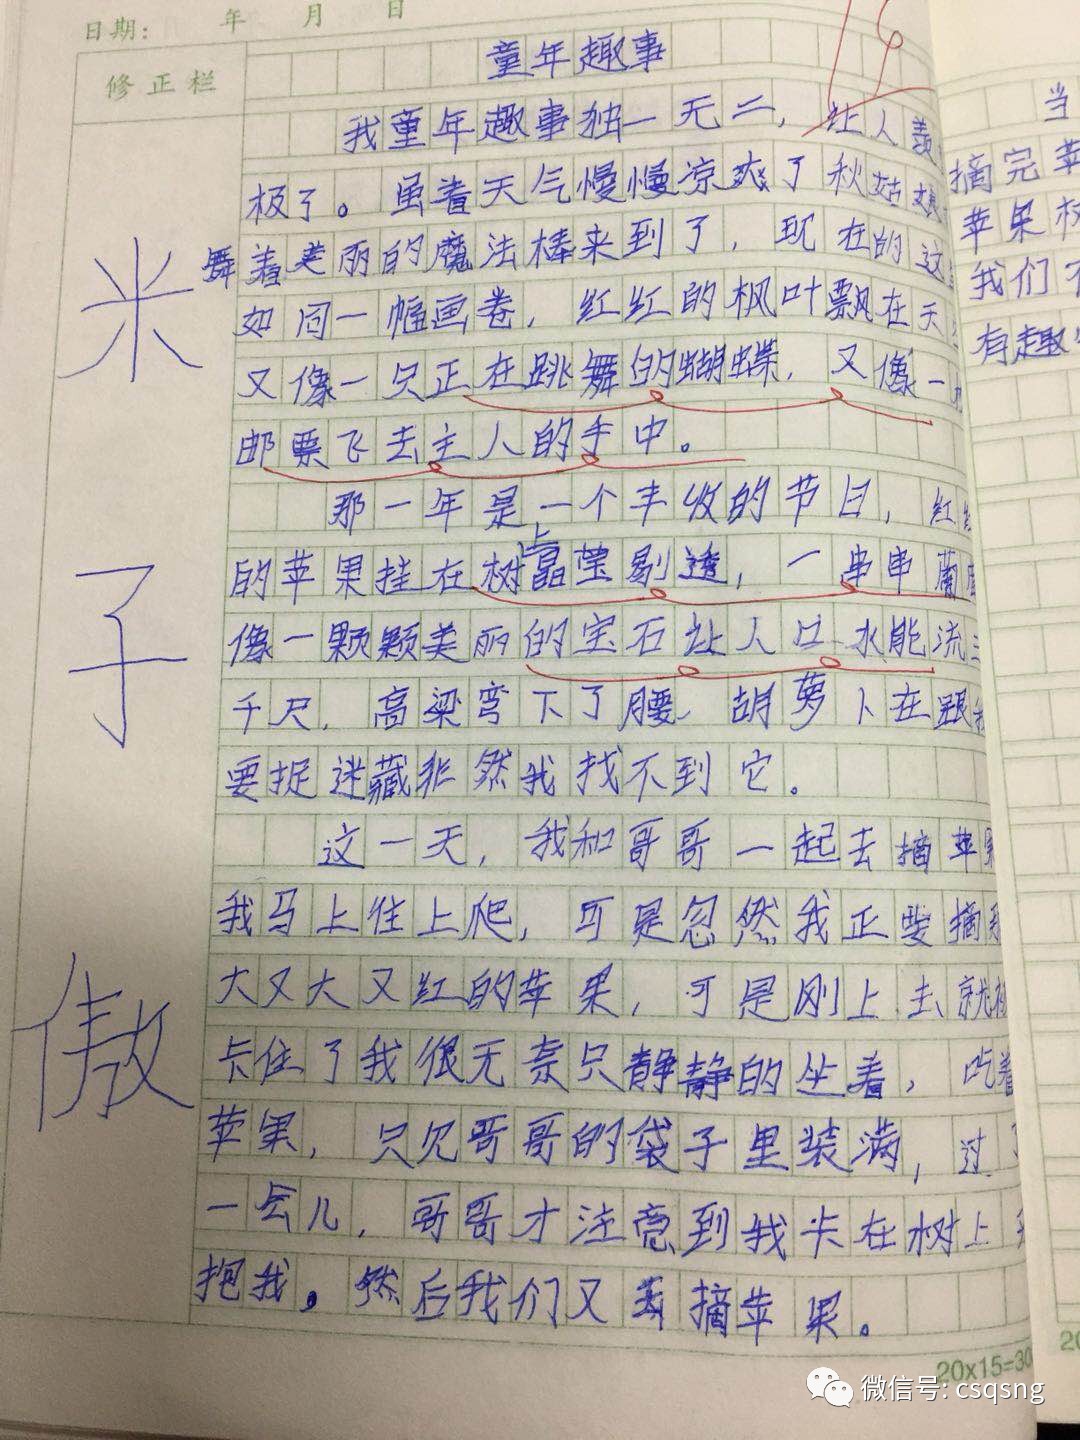 日期: 年 月 日
修正栏
童年趣事
我童年趣事独一无二，让人羡
极了。虽着天气慢慢凉爽了秋姑娘
舞着美丽的魔法棒来到了，现在的这
如同一幅画卷，红红的枫叶飘在天
又像一只正在跳舞的蝴蝶，又像一
邮票飞去主人的手中。
那一年是一个丰收的节日，红红
的苹果挂在树上晶莹剔透，一串串葡
像一颗颗美丽的宝石让人口水能流三
千尺，高梁弯下了腰，胡萝卜在跟我
要捉迷藏非然我找不到它。
这一天，我和哥哥一起去摘苹果
我马上住上爬，可是忽然我正要摘那
大又大又红的苹果，可是刚上去就被
卡住了我很无奈只静静的坐着，吃着
苹果，只见哥哥的袋子里装满，过了
一会儿，哥哥才注意到我卡在树上
抱我。然后我们又去摘苹果。
米子傲
当
摘完苹
苹果树
我们不
有趣
16
20x15=30
20
微信号: csqsng